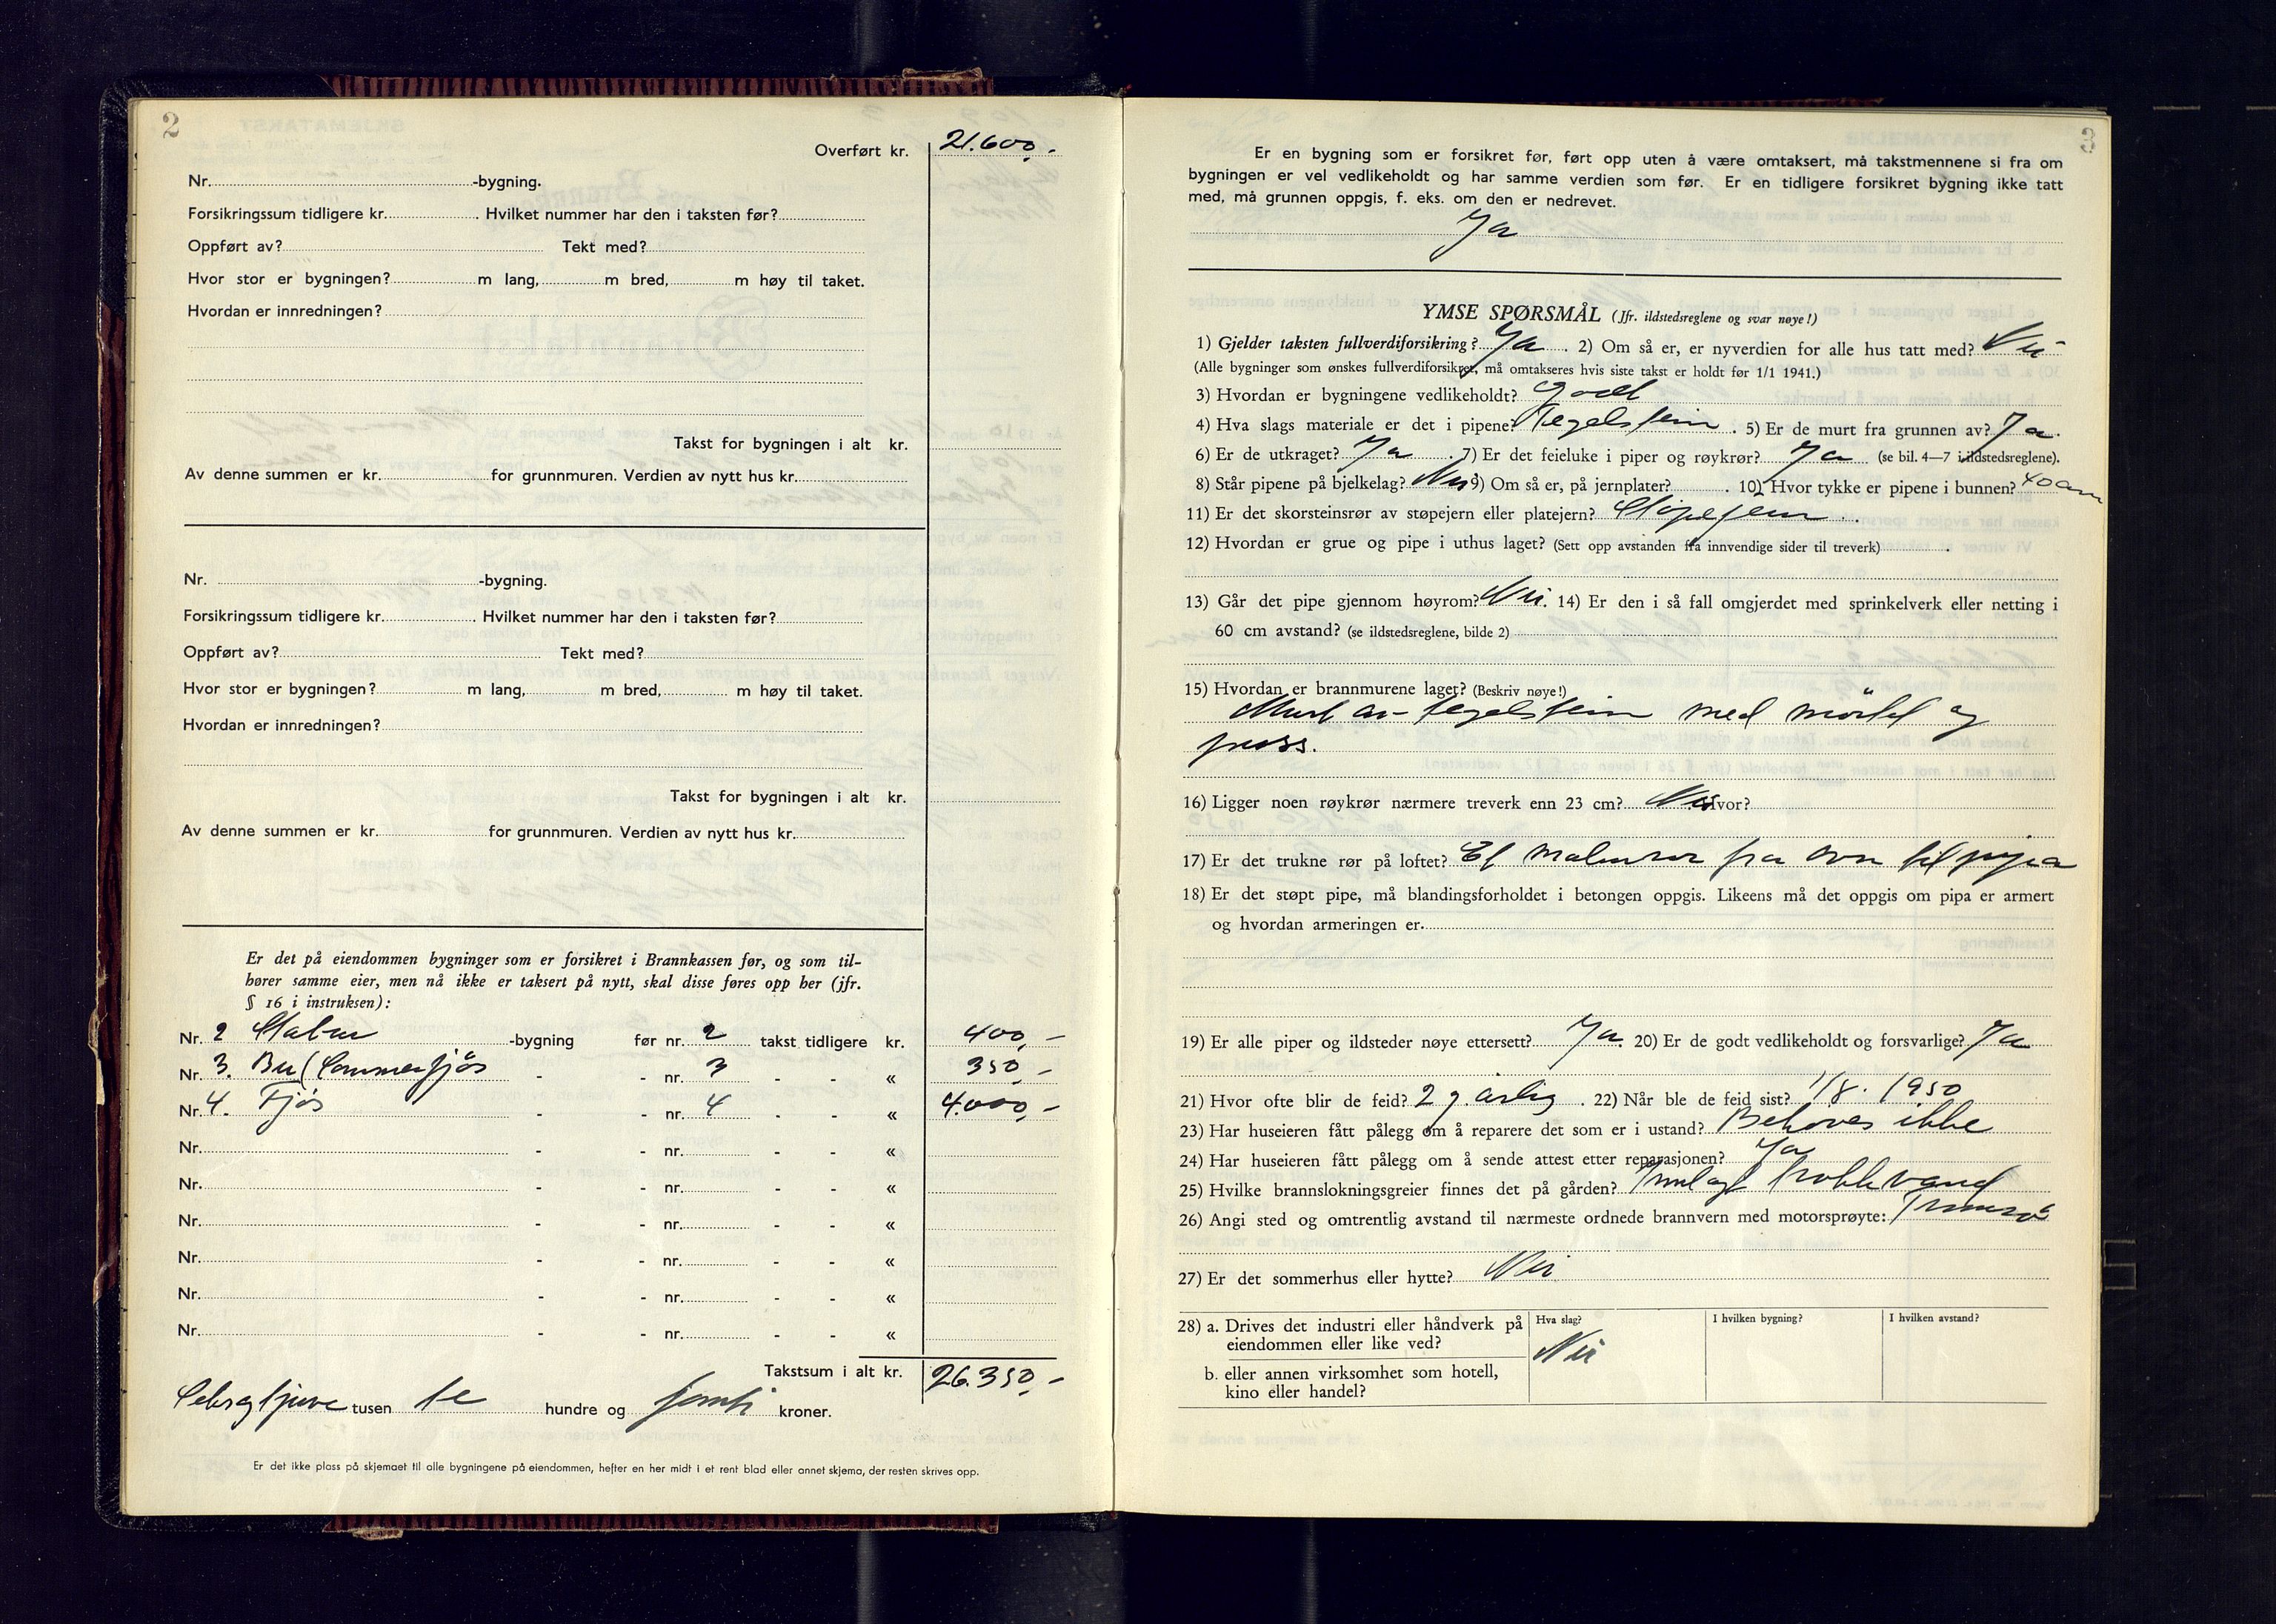 2
Overført kr. 21.600,-
Nr. -bygning.
Forsikringssum tidligere kr. . Hvilket nummer har den i taksten før?
Oppført av? Tekt med?
Hvor stor er bygningen? m lang, m bred, m høy til taket.
Hvordan er innredningen?
Takst for bygningen i alt kr.
Av denne summen er kr. for grunnmuren. Verdien av nytt hus kr.
Nr. -bygning.
Forsikringssum tidligere kr. . Hvilket nummer har den i taksten før?
Oppført av? Tekt med?
Hvor stor er bygningen? m lang, m bred, m høy til taket.
Hvordan er innredningen?
Takst for bygningen i alt kr.
Av denne summen er kr. for grunnmuren. Verdien av nytt hus kr.
Er det på eiendommen bygninger som er forsikret i Brannkassen før, og som til-
hører samme eier, men nå ikke er taksert på nytt, skal disse føres opp her (jfr.
§ 16 i instruksen):
Nr. 2 Stabur -bygning før nr. 2 takst tidligere kr. 400,-
Nr. 3. Bu (Sommerfjös - - nr. 3 - - « 350,-
Nr. 4. Fjös - - nr. 4 - - « 4.000,-
Nr. - - nr. - - «
Nr. - - nr. - - «
Nr. - - nr. - - «
Nr. - - nr. - - «
Nr. - - nr. - - «
Nr. - - nr. - - «
Takstsum i alt kr. 26.350,-
Seksogtjuve tusen tre hundre og femti kroner.
Er det ikke plass på skjemaet til alle bygningene på eiendommen, hefter en her midt i et rent blad eller annet skjema, der resten skrives opp.
3
Er en bygning som er forsikret før, ført opp uten å være omtaksert, må takstmennene si fra om
bygningen er vel vedlikeholdt og har samme verdien som før. Er en tidligere forsikret bygning ikke tatt
med, må grunnen oppgis, f. eks. om den er nedrevet.
Ja
YMSE SPØRSMÅL (Jfr. ildstedsreglene og svar nøye!)
1) Gjelder taksten fullverdiforsikring? Ja . 2) Om så er, er nyverdien for alle hus tatt med? Nei
(Alle bygninger som ønskes fullverdiforsikret, må omtakseres hvis siste takst er holdt før 1/1 1941.)
3) Hvordan er bygningene vedlikeholdt? godt
4) Hva slags materiale er det i pipene? Tegelstein . 5) Er de murt fra grunnen av? Ja.
6) Er de utkraget? Ja . 7) Er det feieluke i piper og røykrør? Ja (se bil. 4—7 i ildstedsreglene).
8) Står pipene på bjelkelag? Nei 9) Om så er, på jernplater? . 10) Hvor tykke er pipene i bunnen? 40 cm
11) Er det skorsteinsrør av støpejern eller platejern? Støpejern .
12) Hvordan er grue og pipe i uthus laget? (Sett opp avstanden fra innvendige sider til treverk) .
13) Går det pipe gjennom høyrom? Nei. 14) Er den i så fall omgjerdet med sprinkelverk eller netting i
60 cm avstand? (se ildstedsreglene, bilde 2)
15) Hvordan er brannmurene laget? (Beskriv nøye!)
Murt av tegelstein med mörtel og
puss.
16) Ligger noen røykrør nærmere treverk enn 23 cm? Nei Hvor?
17) Er det trukne rør på loftet? Et fra ovn til pipa
18) Er det støpt pipe, må blandingsforholdet i betongen oppgis. Likeens må det oppgis om pipa er armert
og hvordan armeringen er.
19) Er alle piper og ildsteder nøye ettersett? Ja. 20) Er de godt vedlikeholdt og forsvarlige? Ja
21) Hvor ofte blir de feid? 2 g. årlig . 22) Når ble de feid sist? 1/8. 1950
23) Har huseieren fått pålegg om å reparere det som er i ustand? Behøves ikke
24) Har huseieren fått pålegg om å sende attest etter reparasjonen? Ja
25) Hvilke brannslokningsgreier finnes det på gården? Innlagt vand
26) Angi sted og omtrentlig avstand til nærmeste ordnede brannvern med motorsprøyte: Tromsö
27) Er det sommerhus eller hytte? Nei
28) a. Drives det industri eller håndverk på
eiendommen eller like ved?
b. eller annen virksomhet som hotell,
kino eller handel?
Hva slag?
Nei
I hvilken bygning?
I hvilken avstand?